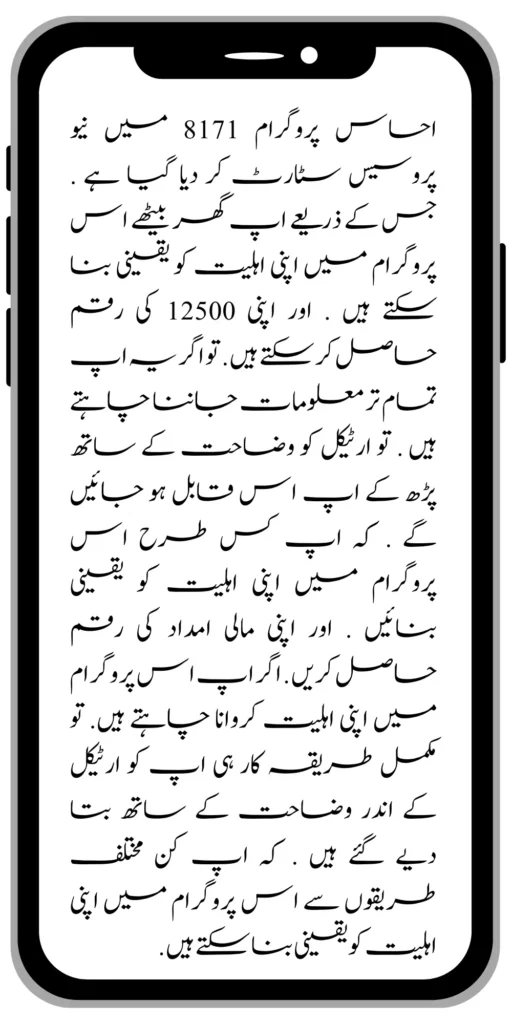 احساس پروگرام 8171 میں نیو
پروسیس سٹارٹ کر دیا گیا ہے .
جس کے ذریعے اپ گھر بیٹھے اس
پروگرام میں اپنی اہلیت کو یقینی بنا
سکتے ہیں . اور اپنی 12500 کی رقم
حاصل کر سکتے ہیں. تو اگر یہ اپ
تمام تر معلومات جاننا چاہتے
ہیں . تو ارٹیکل کو وضاحت کے ساتھ
پڑھ کے اپ اس قابل ہو جائیں
گے . کہ اپ کس طرح اس
پروگرام میں اپنی اہلیت کو یقینی
بنائیں . اور اپنی مالی امداد کی رقم
حاصل کریں. اگر اپ اس پروگرام
میں اپنی اہلیت کروانا چاہتے ہیں. تو
مکمل طریقہ کار ہی اپ کو ارٹیکل
کے اندر وضاحت کے ساتھ بتا
دیے گئے ہیں . کہ اپ کن مختلف
طریقوں سے اس پروگرام میں اپنی
اہلیت کو یقینی بنا سکتے ہیں.